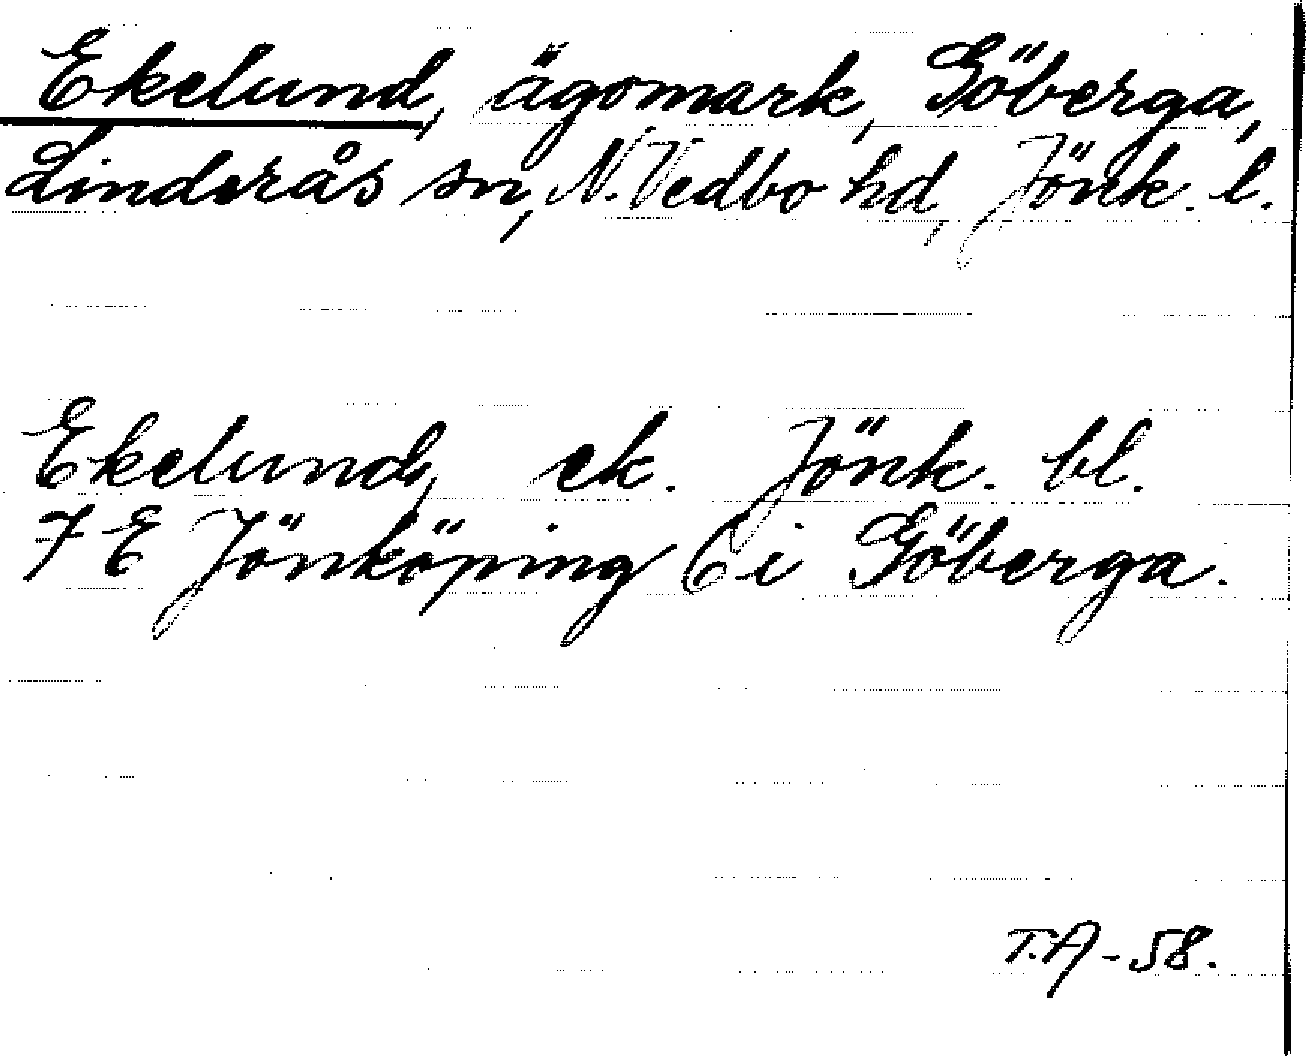 Ekelund, ägomark, Göberga,
Linderås sn, N. Vedbo hd, Jönk. l.
Ekelund, ek. Jönk. bl.
7 E Jönköping 6 i Göberga.
T.A-58.